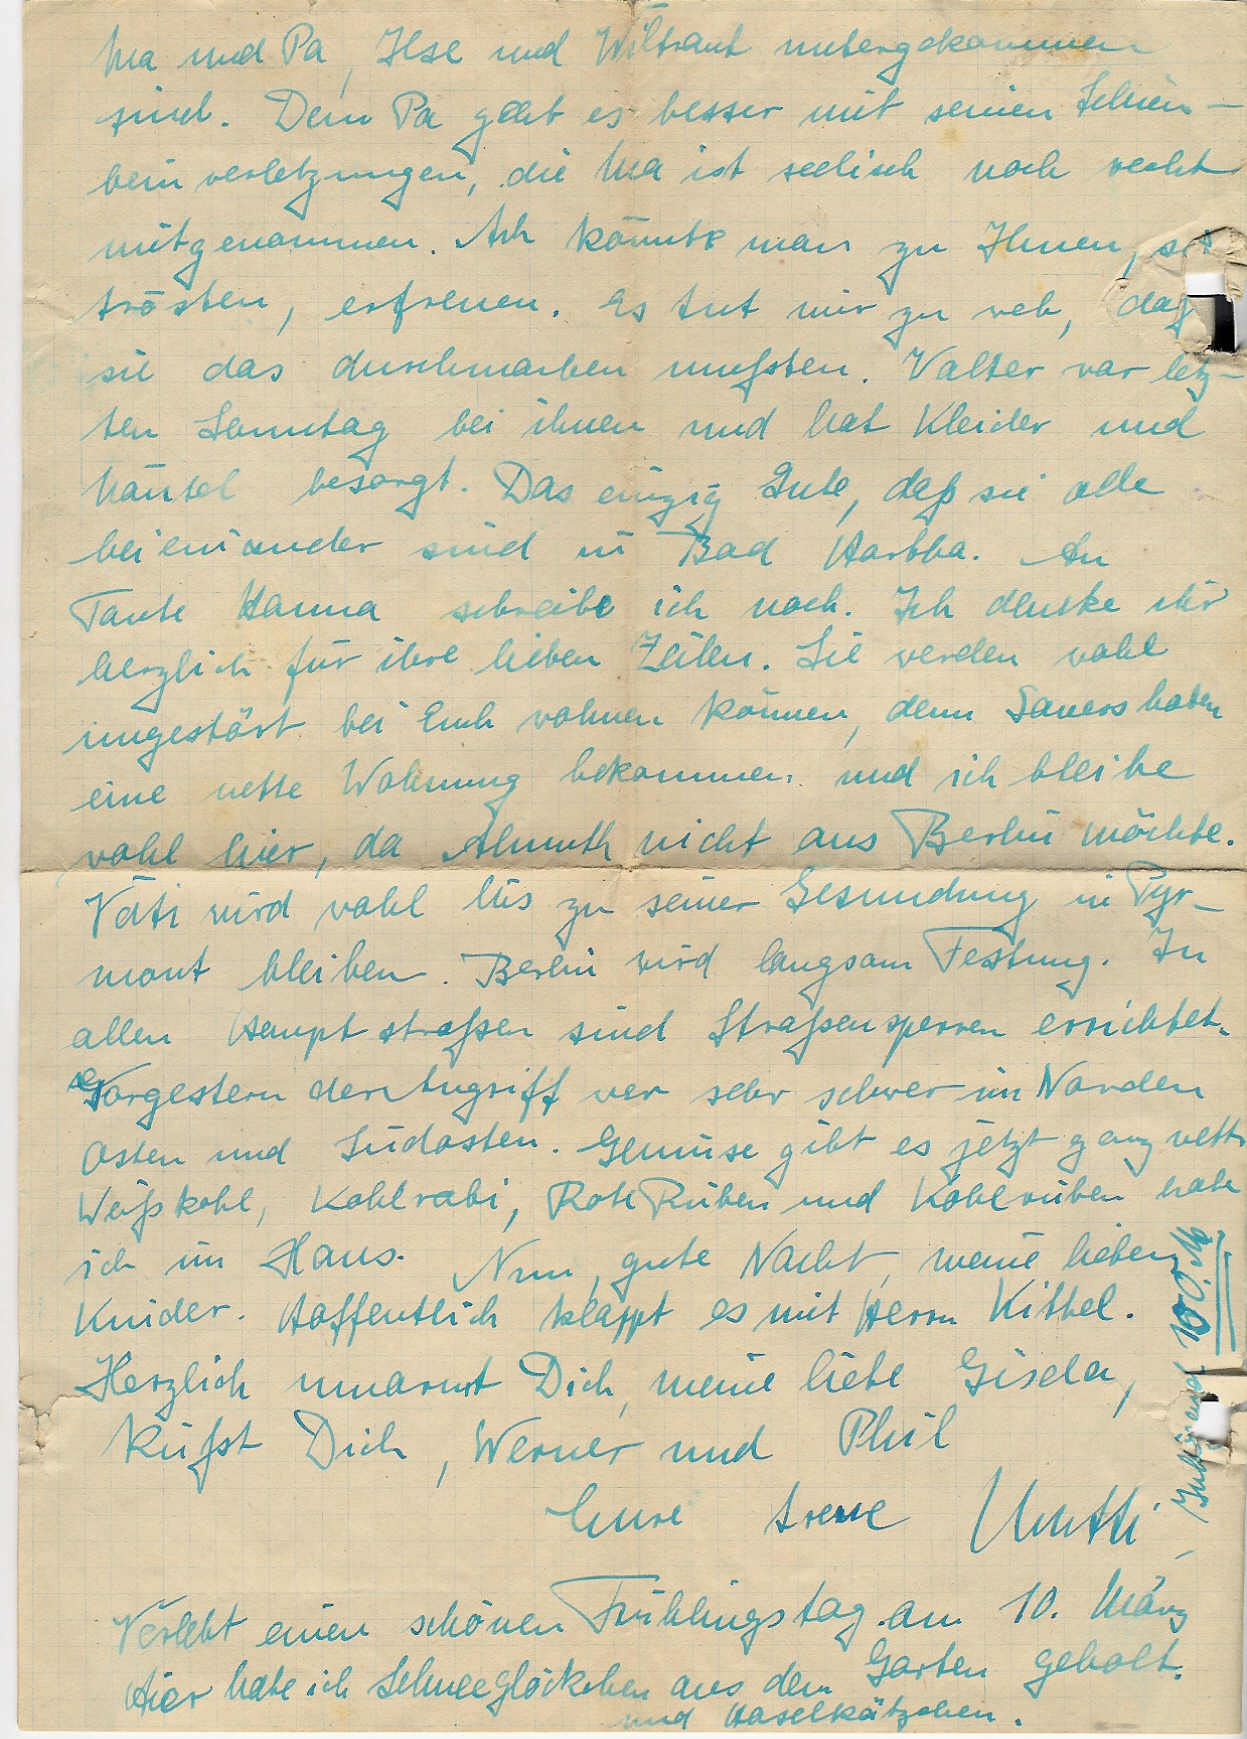 Ma und Pa, Ilse und Wiltraut untergekommen
sind. Dem Pa geht es besser mit seinen Schien-
beinverletzungen, die Ma ist seelisch noch recht
mitgenommen. Ach könnte man zu Ihnen, sie
trösten, erfreuen. Es tut mir zu weh, daß
sie das durchmachen mußten. Walter war letz-
ten Sonntag bei ihnen und hat Kleider und
Mäntel besorgt. Das einzig Gute, daß sie alle
beieinander sind in Bad Hartha. An
Tante Hanna schreibe ich noch. Ich danke ihr
herzlich für ihre lieben Zeilen. Sie werden wohl
ungestört bei Euch wohnen können, denn Sauers haben
eine nette Wohnung bekommen und ich bleibe
wohl hier, da Almuth nicht aus Berlin möchte.
Vati wird wohl bis zu seiner Gesundung in Pyr-
mont bleiben. Berlin wird langsam Festung. In
allen Hauptstraßen sind Straßensperren errichtet.
Vorgestern der Angriff war sehr schwer im Norden
Osten und Südosten. Gemüse gibt es jetzt ganz nett.
Weißkohl, Kohlrabi, Rote Rüben und Kohlrüben habe
ich im Haus. Nun, gute Nacht, meine lieben
Kinder. Hoffentlich klappt es mit Herrn Kittel.
Herzlich umarmt Dich, meine liebe Gisela,
küßt Dich, Werner und Phil
Eure treue Mutti
Verlebt einen schönen Frühlingstag am 10. März
Hier habe ich Schneeglöckchen aus dem Garten geholt.
und Haselkätzchen.